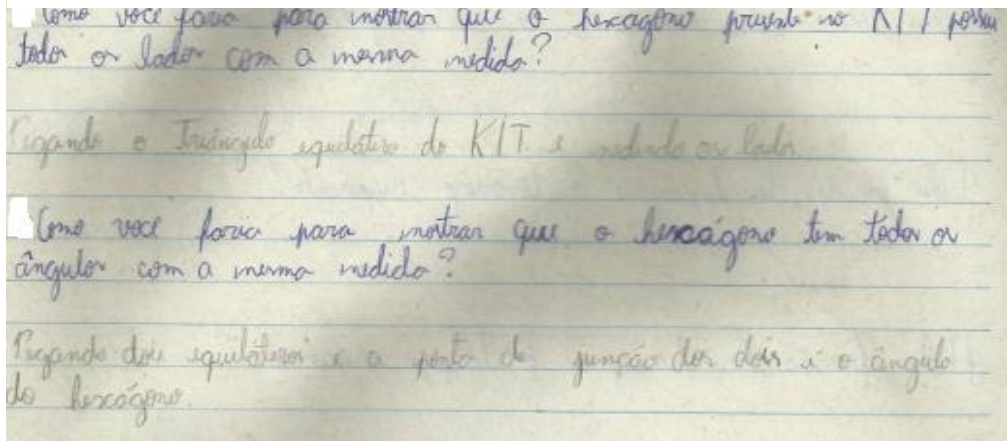 Como você faria para mostrar que o hexagono presente no KIT possui
todos os lados com a mesma medida?
Pegando o Triângulo equilátero do KIT e medindo os lados
Como você faria para mostrar que o hexágono tem todos os
ângulos com a mesma medida?
Pegando dois equiláteros e a ponto de junção dos dois é o ângulo
do hexágono.